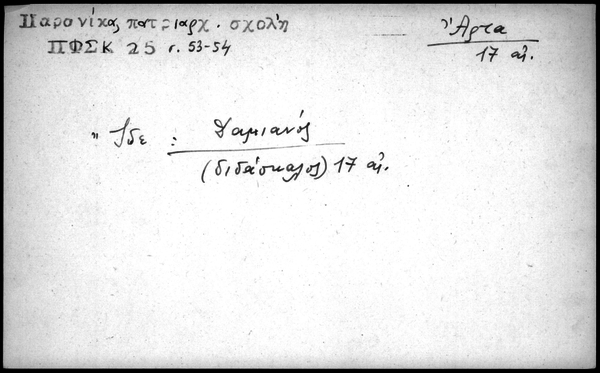 Παρανίκας πατριαρχ. σχολή
ΠΦΣΚ 25 σ. 53-54
Ἄρτα
17 αἰ.
Ἴδε : Δαμιανός
(διδάσκαλος) 17 αἰ.